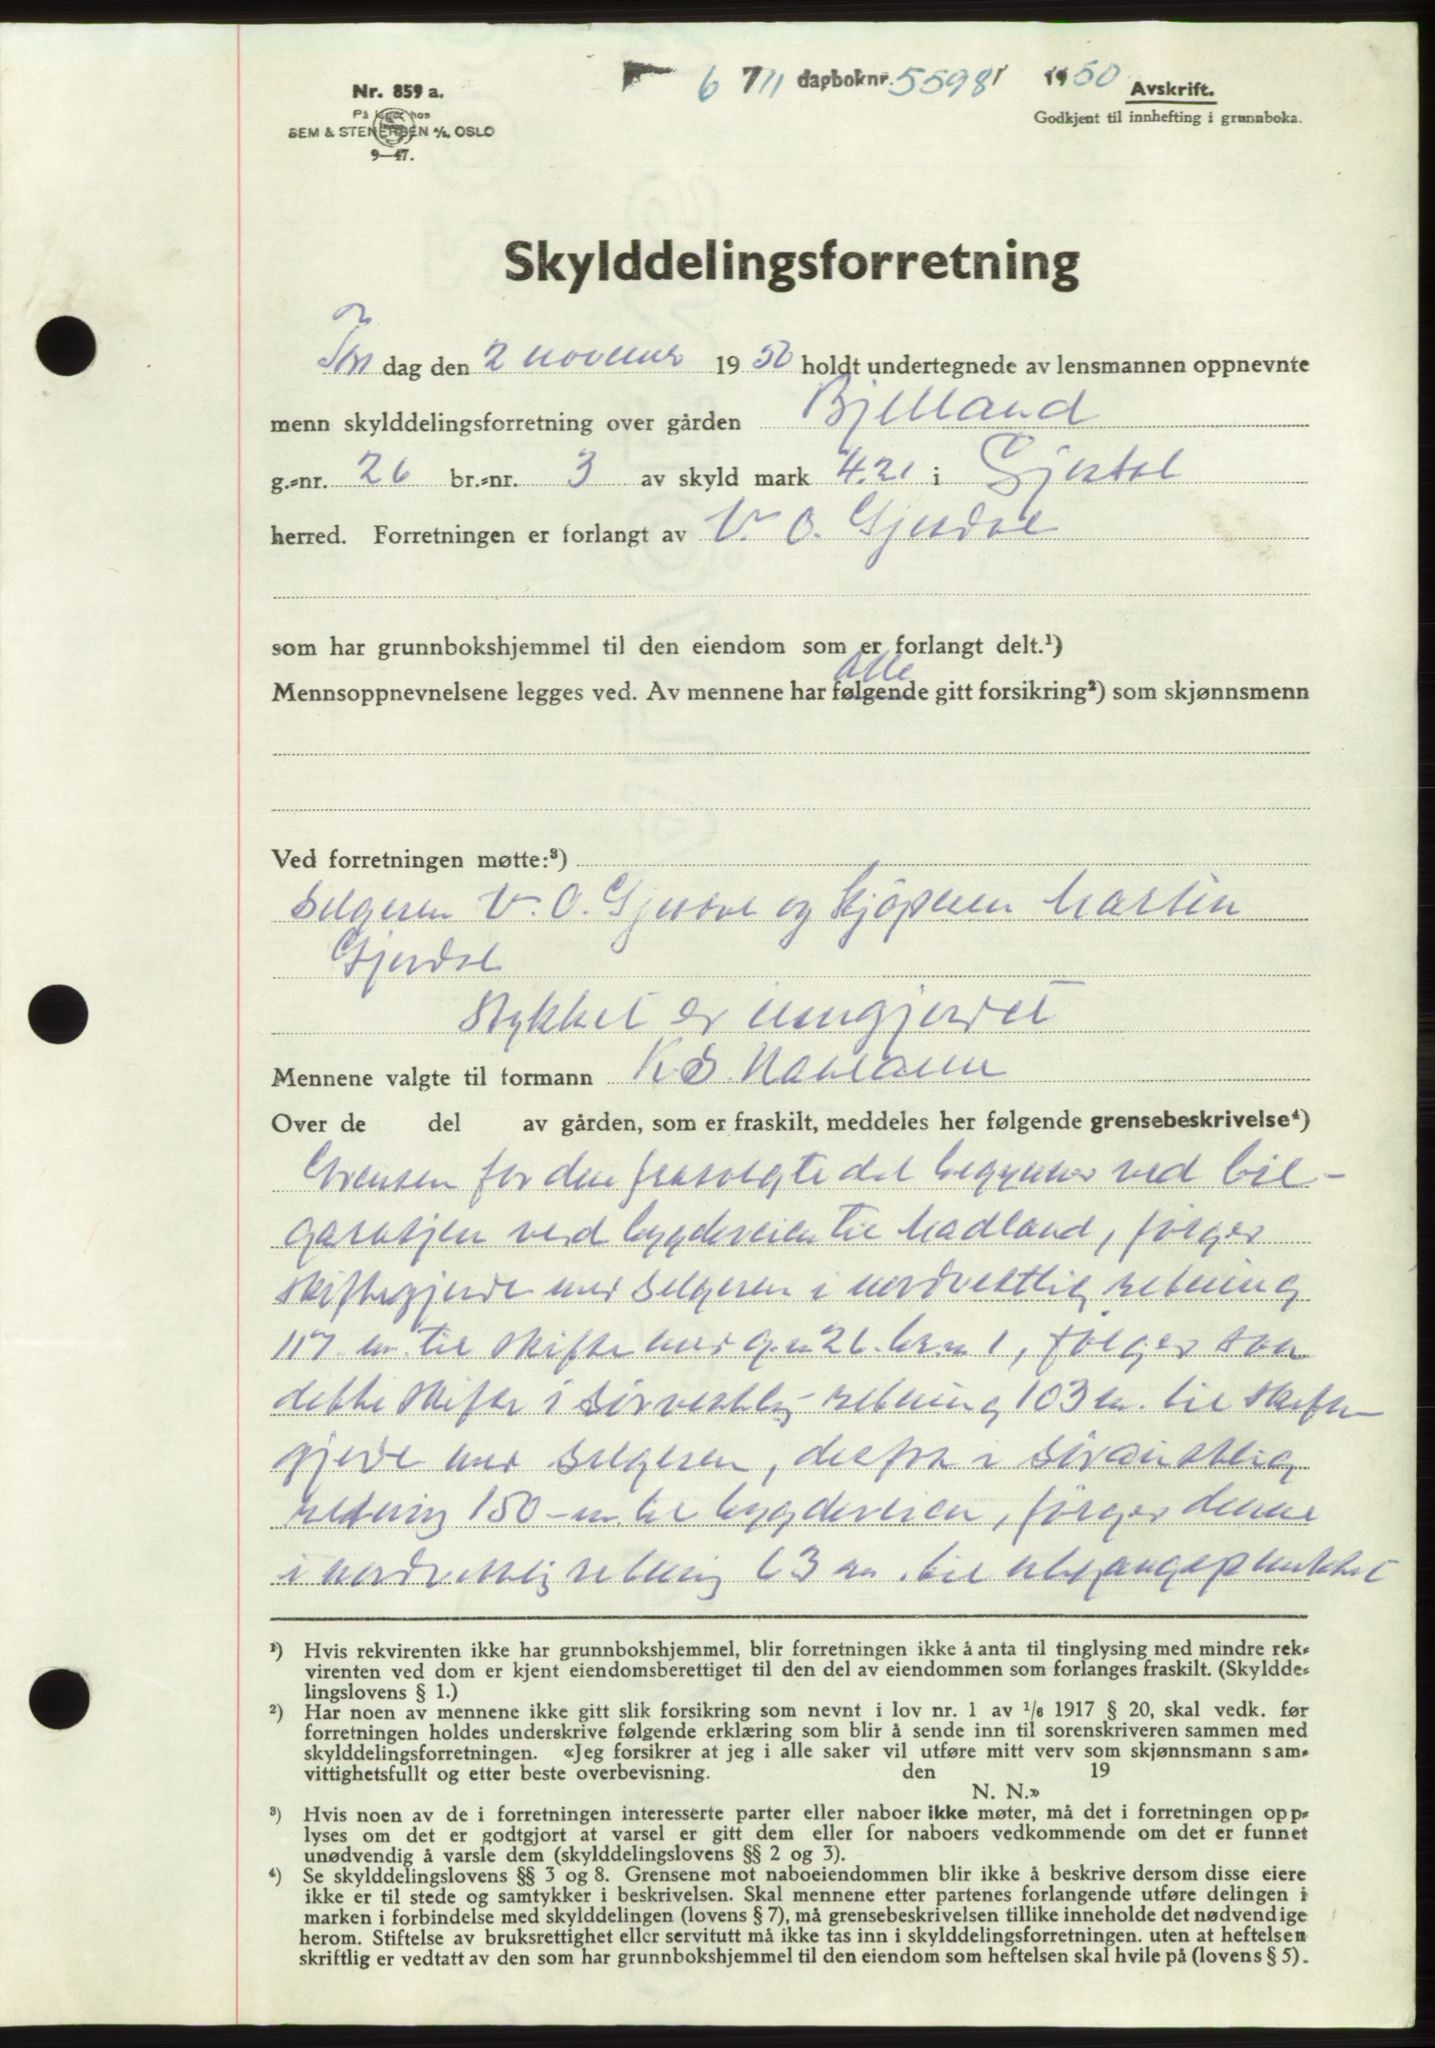 6 7/11 dagboknr. 5598 1950
Nr. 859 a.
På lager hos
SEM & STENERSEN A/S, OSLO
9—47.
Avskrift.
Godkjent til innhefting i grunnboka.
Skylddelingsforretning
Tors dag den 2 november 1950 holdt undertegnede av lensmannen oppnevnte
menn skylddelingsforretning over gården Bjelland
g.-nr. 26 br.-nr. 3 av skyld mark 4.21 i Gjestal
herred. Forretningen er forlangt av V. O. Gjesdal
som har grunnbokshjemmel til den eiendom som er forlangt delt.¹)
alle
Mennsoppnevnelsene legges ved. Av mennene har følgende gitt forsikring²) som skjønnsmenn
Ved forretningen møtte:³)
Selgeren V. O. Gjesdal og kjøperen Martin
Gjesdal
Stykket er inngjerdet
Mennene valgte til formann K. S.
Over de del av gården, som er fraskilt, meddeles her følgende grensebeskrivelse⁴)
Grensen for den frasolgte del begynner ved bil-
garasjen ved bygdeveien til Madland, følger
skiftegjerde med selgeren i nordvestlig retning
117 m. til skifte med g.n 26 br.n 1, følger saa
dette skifte i sørvestlig retning 103 m. til skifte-
gjerde med selgeren, derfra i sørøstlig
retning 150 m. til bygdeveien, følger denne
i nordvestlig retning 63 m. til utgangspunktet
¹) Hvis rekvirenten ikke har grunnbokshjemmel, blir forretningen ikke å anta til tinglysing med mindre rek-
virenten ved dom er kjent eiendomsberettiget til den del av eiendommen som forlanges fraskilt. (Skyldde-
lingslovens § 1.)
²) Har noen av mennene ikke gitt slik forsikring som nevnt i lov nr. 1 av 1/6 1917 § 20, skal vedk. før
forretningen holdes underskrive følgende erklæring som blir å sende inn til sorenskriveren sammen med
skylddelingsforretningen. «Jeg forsikrer at jeg i alle saker vil utføre mitt verv som skjønnsmann sam-
vittighetsfullt og etter beste overbevisning. den 19
N. N.»
³) Hvis noen av de i forretningen interesserte parter eller naboer ikke møter, må det i forretningen opp-
lyses om det er godtgjort at varsel er gitt dem eller for naboers vedkommende om det er funnet
unødvendig å varsle dem (skylddelingslovens §§ 2 og 3).
⁴) Se skylddelingslovens §§ 3 og 8. Grensene mot naboeiendommen blir ikke å beskrive dersom disse eiere
ikke er til stede og samtykker i beskrivelsen. Skal mennene etter partenes forlangende utføre delingen i
marken i forbindelse med skylddelingen (lovens § 7), må grensebeskrivelsen tillike inneholde det nødvendige
herom. Stiftelse av bruksrettighet eller servitutt må ikke tas inn i skylddelingsforretningen. uten at heftelsen
skriftlig er vedtatt av den som har grunnbokshjemmel til den eiendom som heftelsen skal hvile på (lovens § 5).